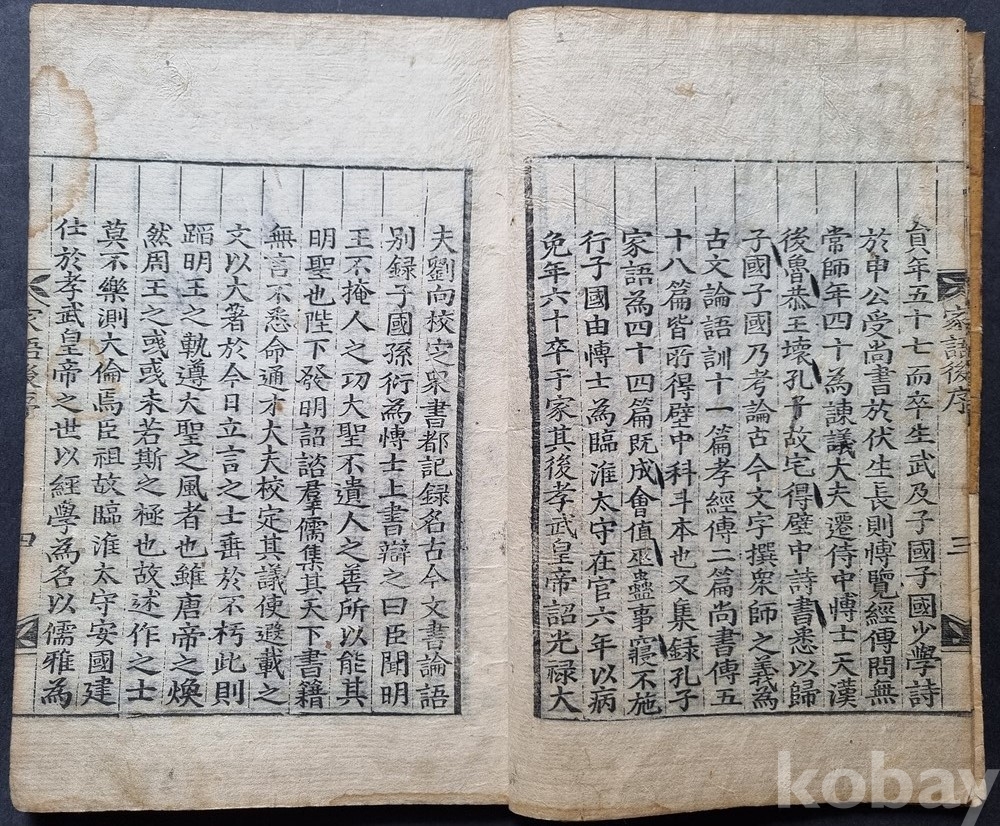 家語後序
三
員年五十七而卒生武及子國子國少學詩
於申公受尚書於伏生長則愽覽經傳問無
常師年四十為諫議大夫遷侍中愽士天漢
後魯恭王壞孔子故宅得壁中詩書悉以歸
子國子國乃考論古今文字撰衆師之義為
古文論語訓十一篇孝經傳二篇尚書傳五
十八篇皆所得壁中科斗本也又集録孔子
家語為四十四篇既成會值巫蠱事寢不施
行子國由愽士為臨淮太守在官六年以病
免年六十卒于家其後孝武皇帝詔光禄大
夫劉向校定衆書都記録名古今文書論語
别録子國孫衍為愽士上書辯之曰臣聞明
王不掩人之功大聖不遺人之善所以能其
明聖也陛下發明詔諮羣儒集其天下書籍
無言不悉命通才大夫校定其議使遐載之
文以大著於今日立言之士垂於不朽此則
蹈明王之軌遵大聖之風者也雖唐帝之煥
然周王之彧彧未若斯之極也故述作之士
莫不樂測大倫焉臣祖故臨淮太守安國建
仕於孝武皇帝之世以經學為名以儒雅為
家語後序
四
kobay